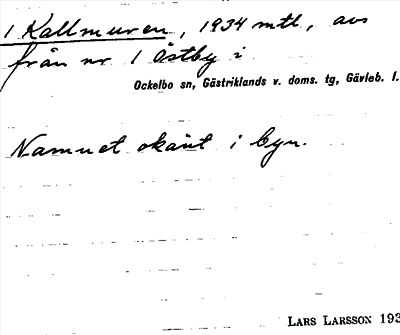 1 Kallmuren, 1934 mtl, avs
från nr 1 Östby i
Ockelbo sn, Gästriklands v. doms. tg, Gävleb. l.
Namnet okänt i byn.
LARS LARSSON 193